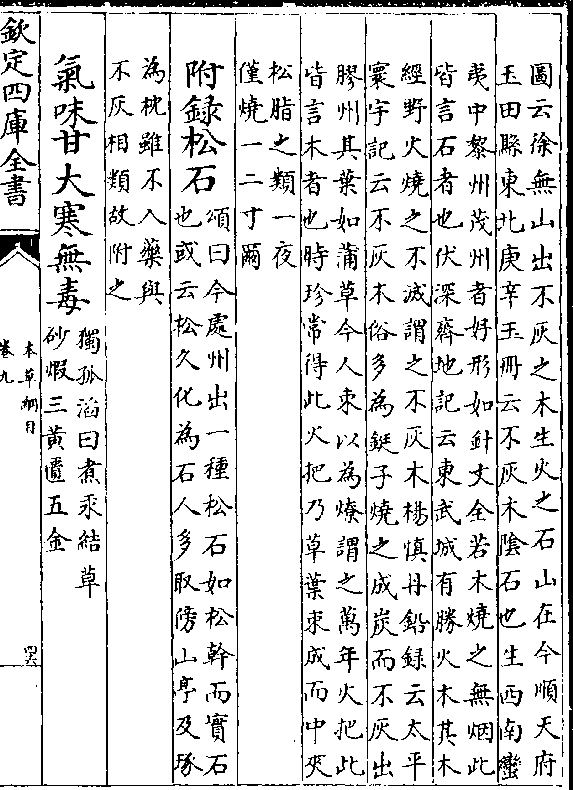 圖云徐無山出不灰之木生火之石山在今順天府
玉田縣東北庚辛玉冊云不灰木陰石也生西南蠻
夷中黎州茂州者好形如針文全若木燒之無烟此
皆言石者也伏深齊地記云東武城有勝火木其木
經野火燒之不滅謂之不灰木楊慎丹鉛録云太平
寰宇記云不灰木俗多為鋌子燒之成炭而不灰出
膠州其葉如蒲草今人束以為燎謂之萬年火把此
皆言木者也時珍常得此火把乃草葉束成而中夾
松脂之類一夜
僅燒一二寸爾
附録松石
頌曰今處州出一種松石如松幹而實石
也或云松久化為石人多取傍山亭及琢
為枕雖不入藥與
不灰相類故附之
氣味甘大寒無毒
獨孤滔曰煮汞結草
砂煅三黄匱五金
欽定四庫全書
本草綱目
卷九